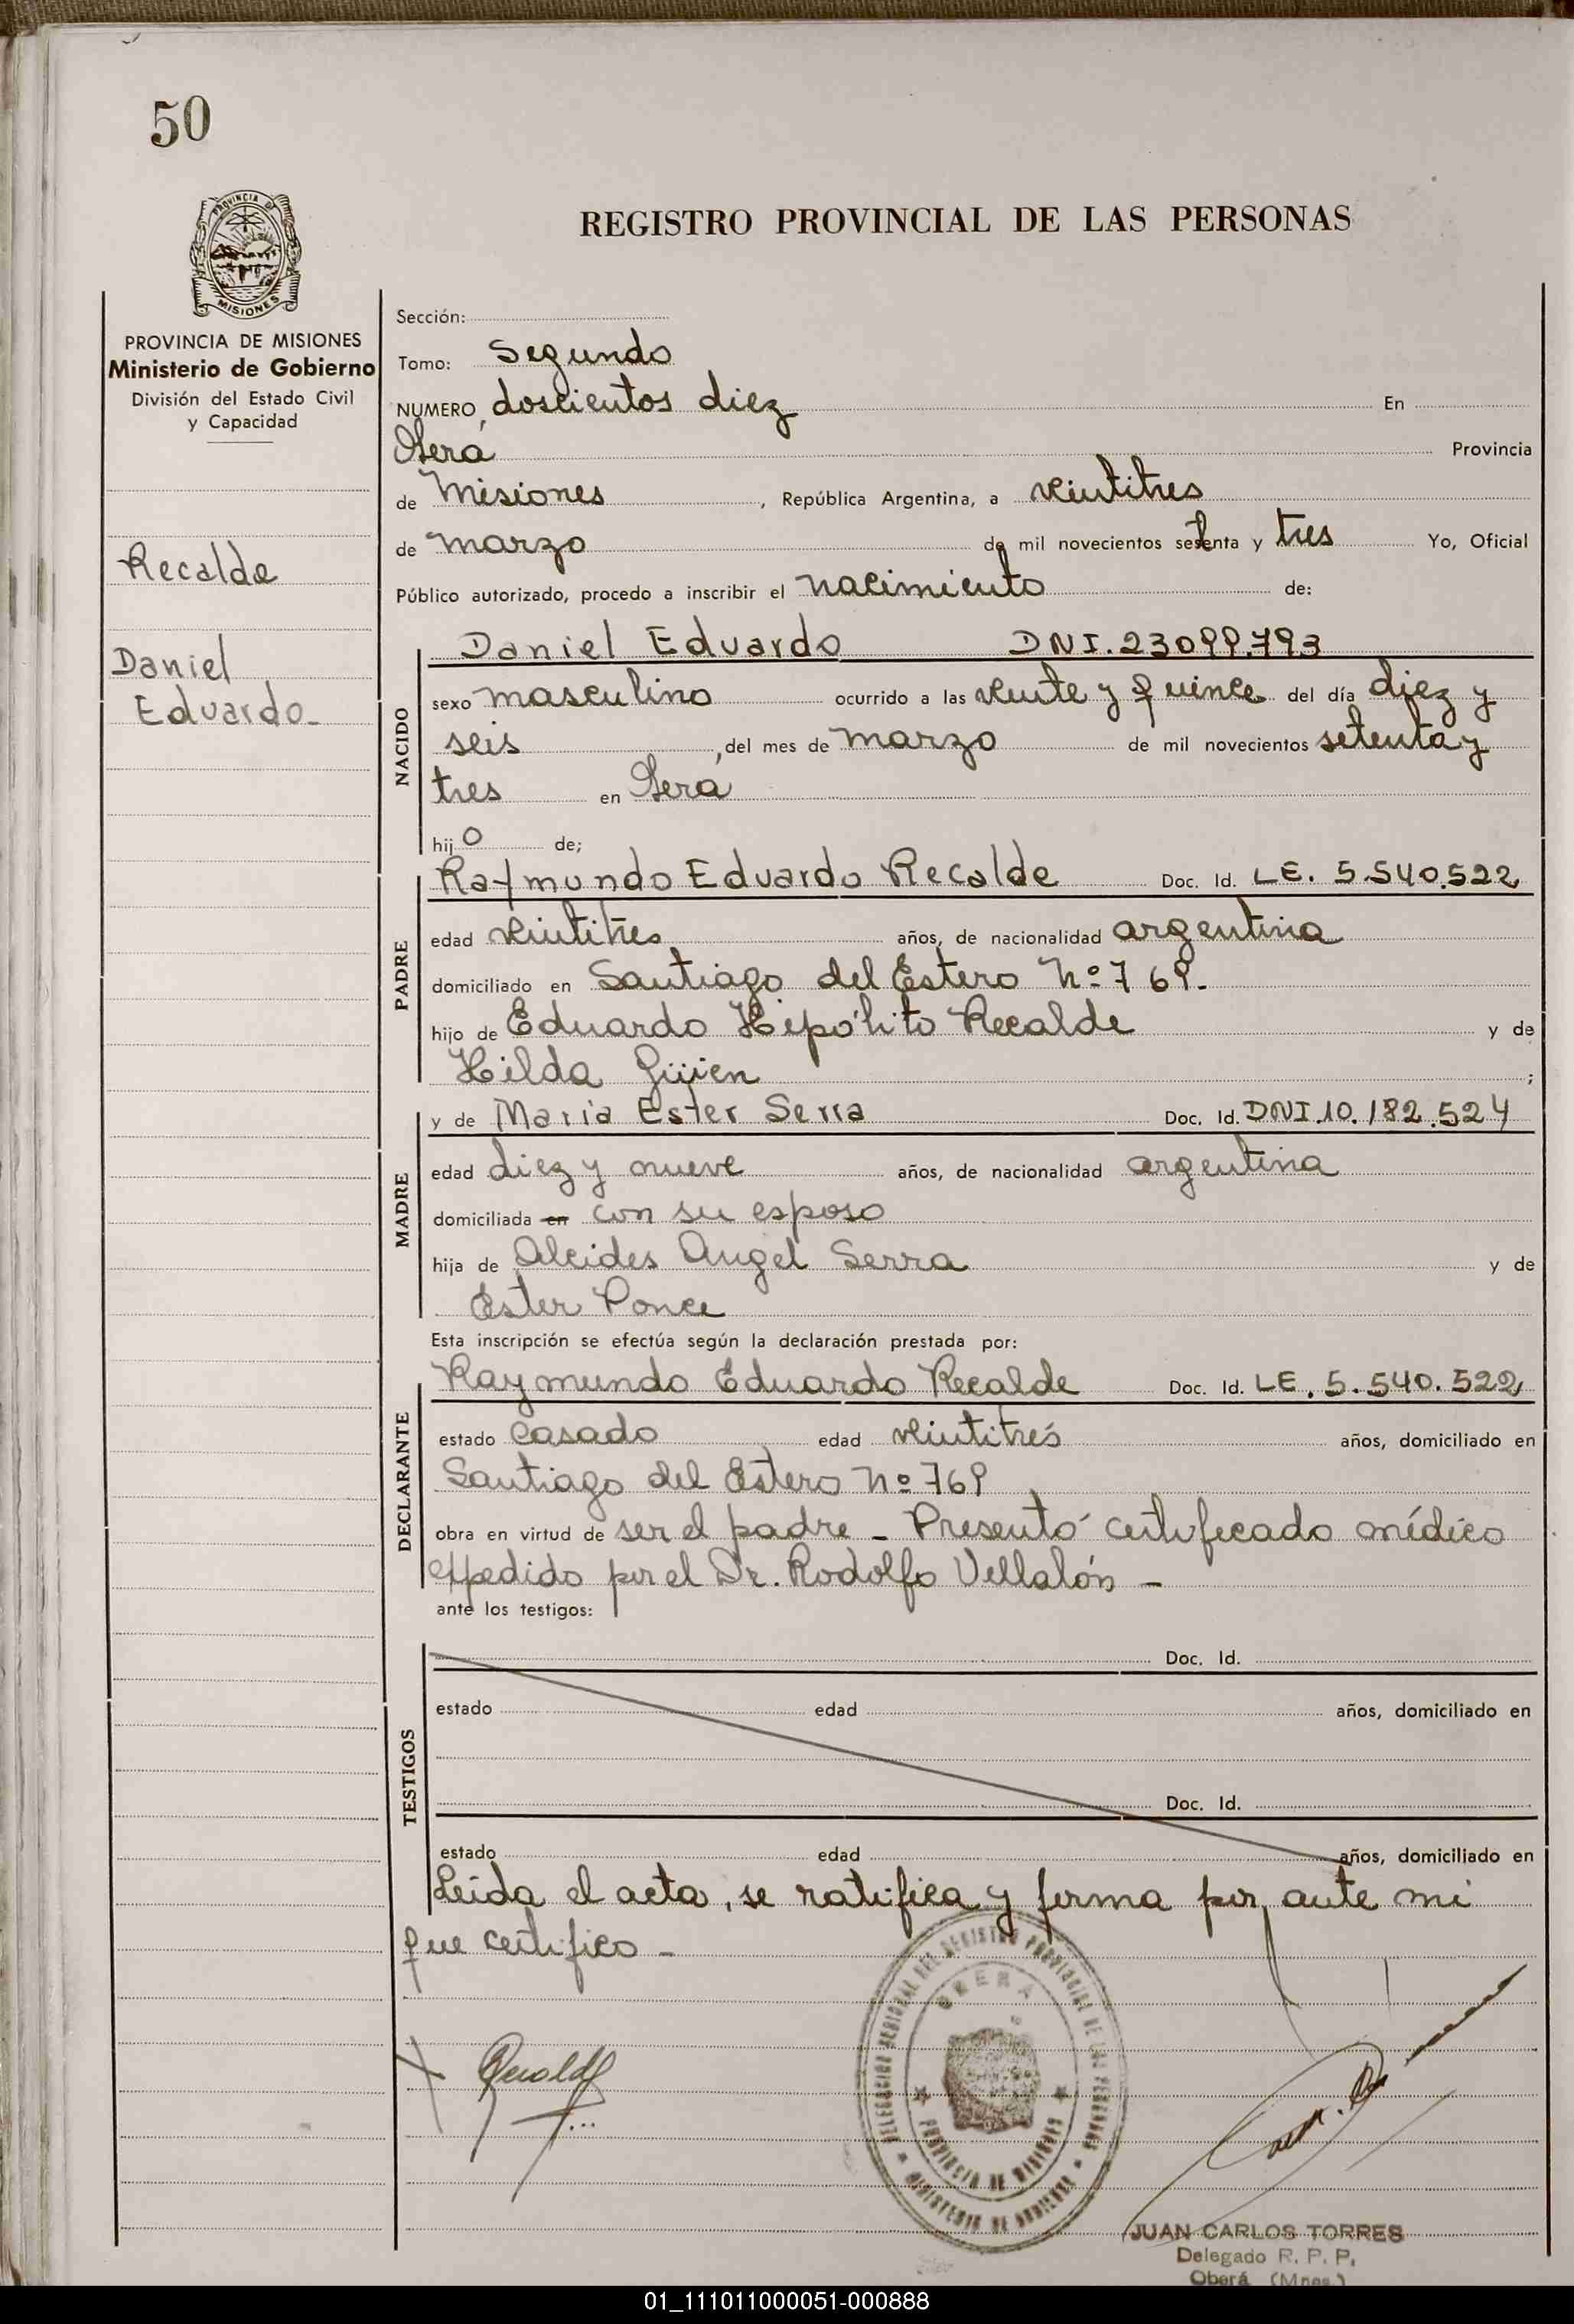 50
PROVINCIA DE
MISIONES
REGISTRO PROVINCIAL DE LAS PERSONAS
PROVINCIA DE MISIONES
Ministerio de Gobierno
División del Estado Civil
y Capacidad
Recalde
Daniel
Eduardo-
Sección:
Tomo: Segundo
NUMERO doscientos diez En
Oberá Provincia
de Misiones, República Argentina, a veintitres
de marzo de mil novecientos setenta y tres Yo, Oficial
Público autorizado, procedo a inscribir el nacimiento de:
NACIDO
Daniel Eduardo DNI.23099.793
sexo masculino ocurrido a las veinte y quince del día diez y
seis, del mes de marzo de mil novecientos setenta y
tres en Oberá
hijo de;
PADRE
Raymundo Eduardo Recalde Doc. Id. LE. 5.540.522
edad veintitres años, de nacionalidad argentina
domiciliado en Santiago del Estero Nº 769.-
hijo de Eduardo Hipólito Recalde y de
Hilda ;
MADRE
y de María Ester Serra Doc. Id. DNI.10.182.524
edad diez y nueve años, de nacionalidad argentina
domiciliada en con su esposo
hija de Alcides Angel Serra y de
Ester Ponce
Esta inscripción se efectúa según la declaración prestada por:
DECLARANTE
Raymundo Eduardo Recalde Doc. Id. LE. 5.540.522
estado casado edad veintitrés años, domiciliado en
Santiago del Estero Nº 769
obra en virtud de ser el padre - Presentó certificado médico
expedido por el Dr. Rodolfo Villalón -
ante los testigos:
TESTIGOS
Doc. Id.
estado edad años, domiciliado en
Doc. Id.
estado edad años, domiciliado en
Leída el acta, se ratifica y firma por ante mi
que certifico -
DELEGACION REGIONAL DEL REGISTRO PROVINCIAL DE LAS PERSONAS
OBERA
PROVINCIA DE MISIONES
MINISTERIO DE GOBIERNO
JUAN CARLOS TORRES
Delegado R. P. P.
Oberá (Mnes.)
01_111011000051-000888